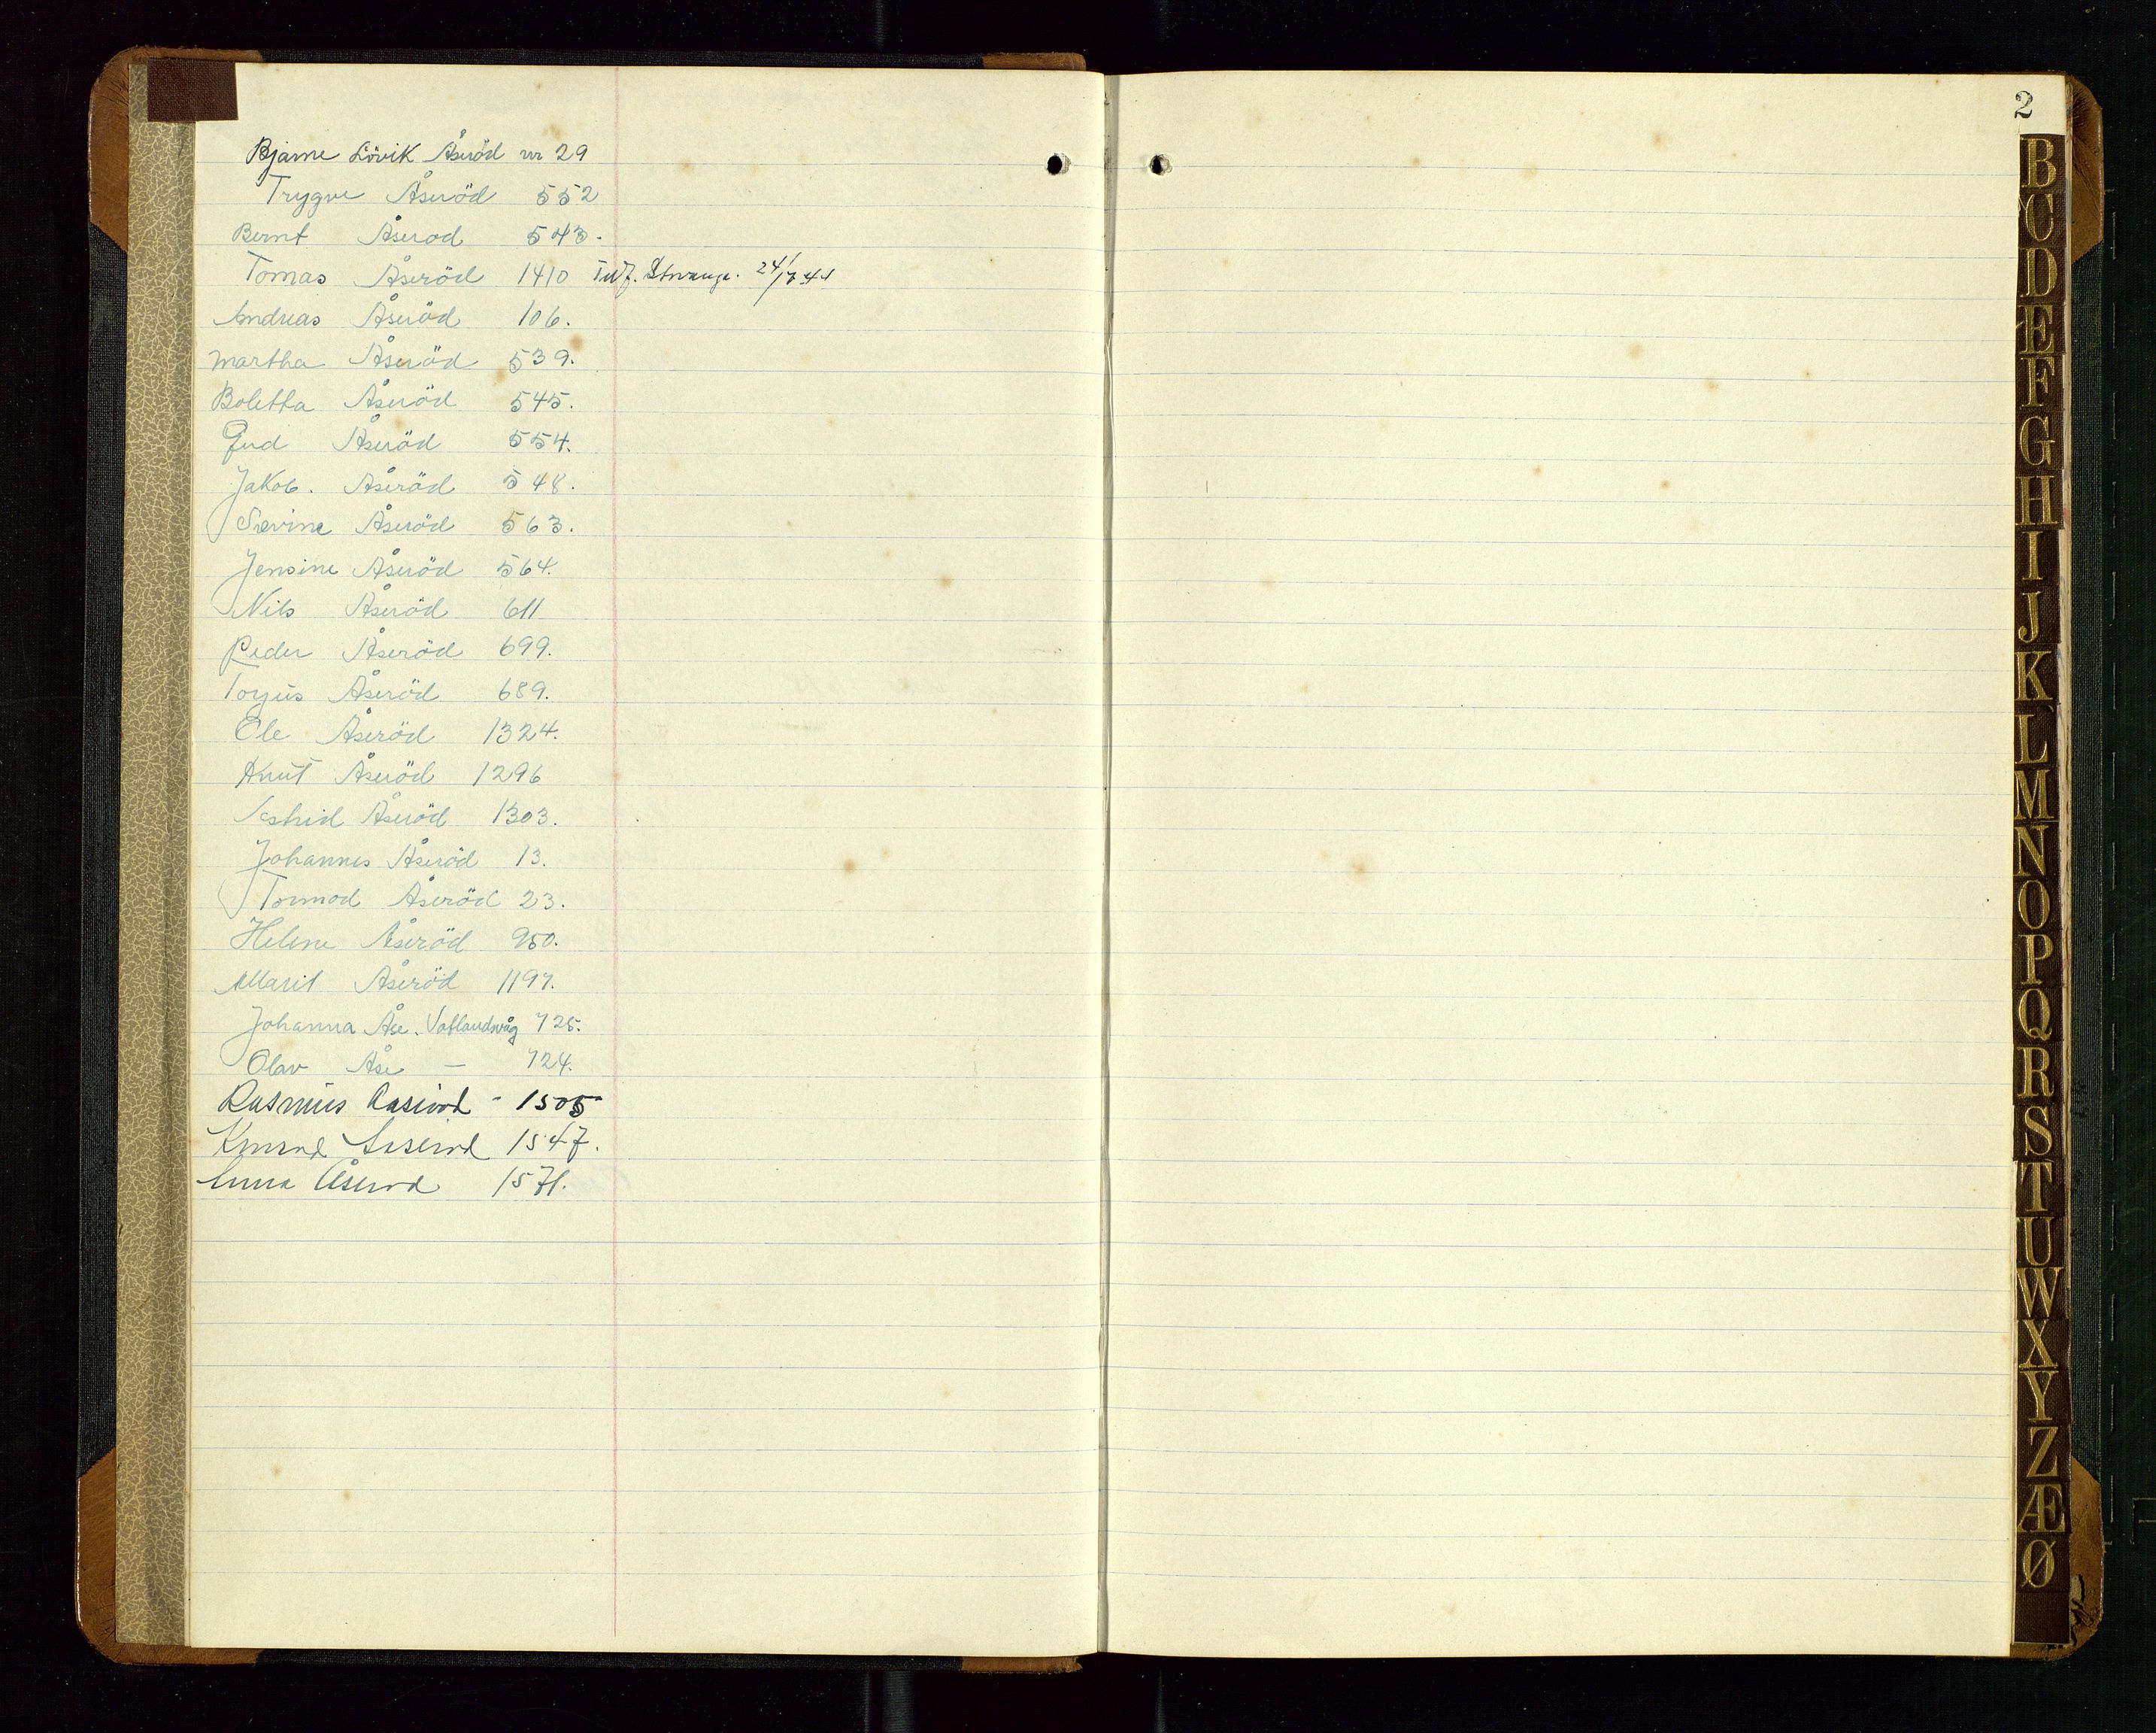 Bjarne Lövik Åseröd nr 29
Trygve Åseröd 552
Bernt Åserod 543.
Tomas Åseröd 1410 24/7 44
Andreas Åseröd 106.
Martha Åseröd 539.
Boletta Åseröd 545.
Åseröd 554.
Jakob. Åseröd 548.
Sevine Åseröd 563.
Jensine Åseröd 564.
Nils Åseröd 611
Peder Åseröd 699.
Torjus Åseröd 689.
Ole Åseröd 1324.
Knut Åseröd 1296
Astrid Åseröd 1303.
Johannes Åseröd 13.
Tormod Åseröd 23.
Helene Åseröd 950.
Marit Åseröd 1197.
Johanna Åse. Vatlandsvåg 725.
Olav Åse — 724.
Rasmus Aaserod - 1505
Aaserod 1547.
Anna Åserod 1571.
2
B
C
D
E
F
G
H
I
J
K
L
M
N
O
P
Q
R
S
T
U
W
X
Y
Z
Æ
Ø